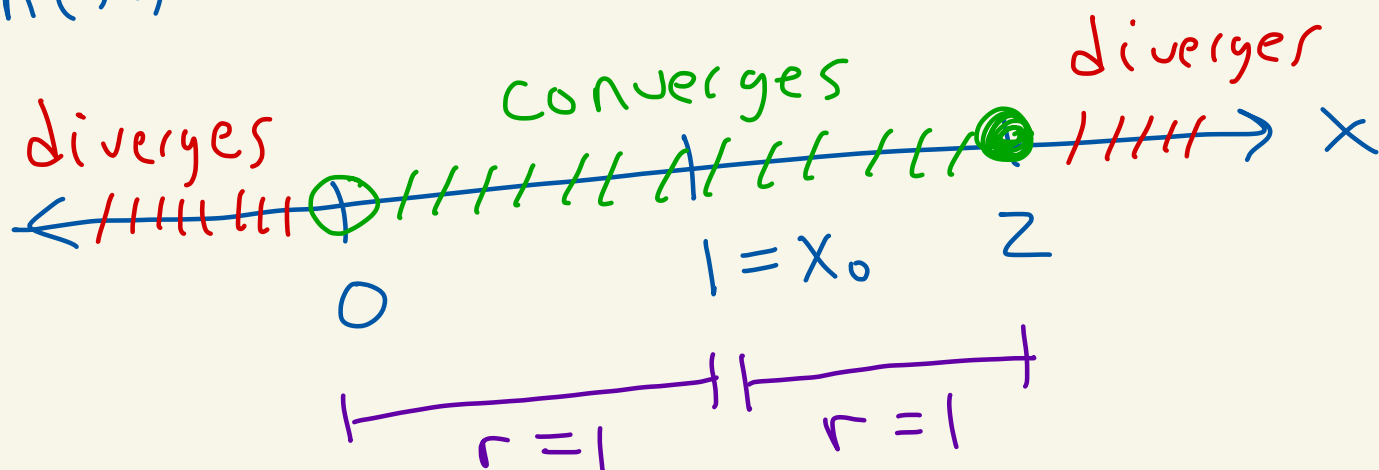 diverges
converges
diverges
x
0
1 = x₀
2
r = 1
r = 1